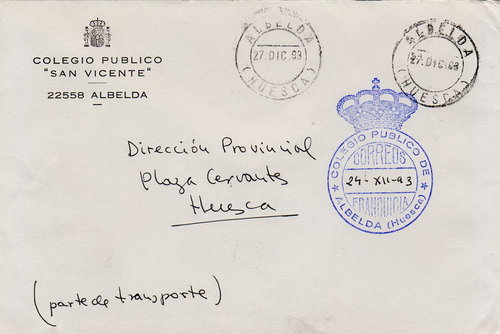 COLEGIO PUBLICO
"SAN VICENTE"
22558 ALBELDA
ALBELDA
27.DIC.93
(HUESCA)
ALBELDA
27.DIC.93
(HUESCA)
COLEGIO PUBLICO DE
CORREOS
24-XII-93
FRANQUICIA
ALBELDA (Huesca)
Dirección Provincial
Plaza Cervantes
Huesca
(parte de transporte)